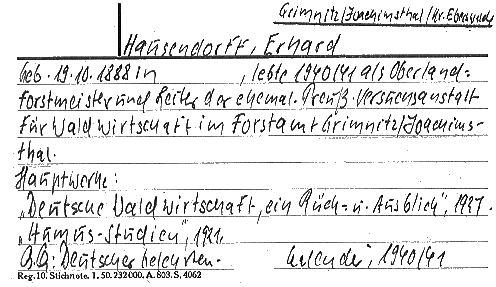 Grimnitz/Joachimsthal/Kr. Eberswalde
Hausendorff, Erhard
geb. 19.10.1888 in , lebte 1940/41 als Oberland=
forstmeister und Leiter der ehemal. Preuß. Versuchsanstalt
für Waldwirtschaft im Forstamt Grimnitz/Joachims-
thal.
Hauptwerke:
„Deutsche Waldwirtschaft, ein Rück- u. Ausblick", 1927.
„Humus-Studien",
Deutscher Gelehrten- kalender, 1940/41
Reg. 10. Stichnote. 1. 50. 232000. A. 803. S. 4062